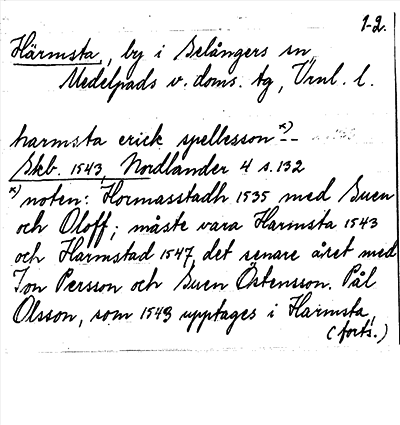 1-2.
Härmsta, by i Selångers sn,
Medelpads v. doms. tg, Vrnl. l.
harmsta erick spellesson x) --
Skb. 1543, Nordlander 4 s. 132
x) noten: Hormasstadh 1535 med Suen
och Oloff; måste vara Harmsta 1543
och Harmstad 1547, det senare året med
Jon Persson och Suen Östensson. Pål
Olsson, som 1543 upptages i Harmsta,
(forts.)